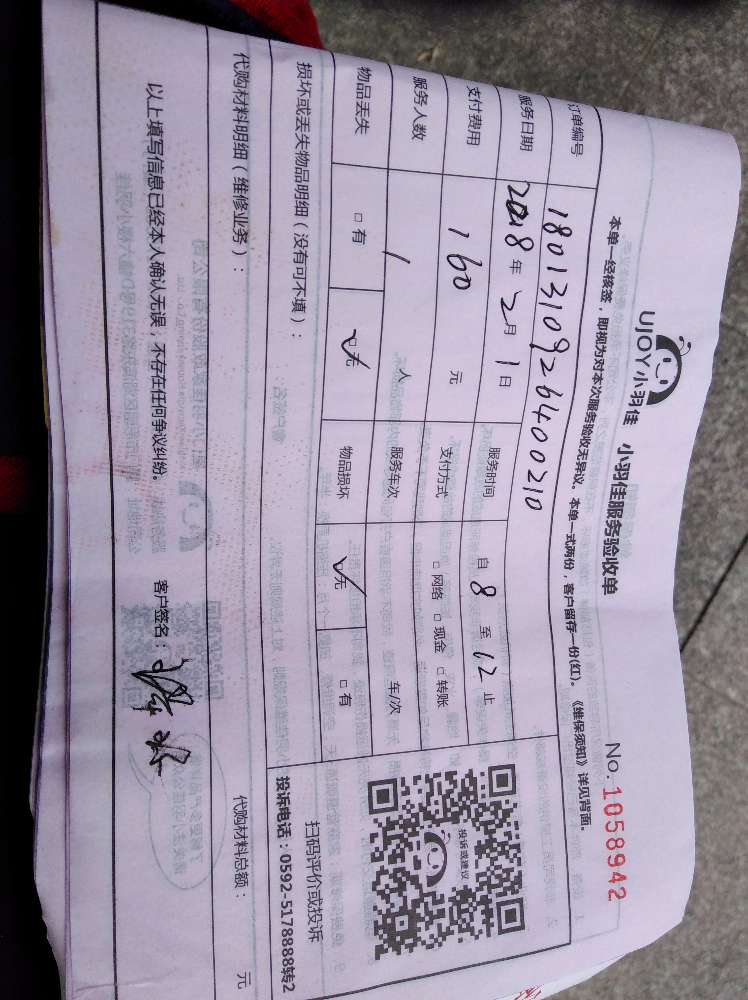 UJOY小羽佳 小羽佳服务验收单 No.1058942
本单一经核签，即视为对本次服务验收无异议。本单一式两份，客户留存一份(红)。《维保须知》详见背面。
订单编号 18013109264400210
服务日期 2018年2月1日 服务时间 自8至12止
支付费用 160元 支付方式 □网络 □现金 □转账
服务人数 1人 服务车次 车/次
物品丢失 □有 ☑无 物品损坏 ☑无 □有
投诉或建议
扫码评价或投诉
投诉电话：0592-5178888转2
损坏或丢失物品明细（没有可不填）：
代购材料明细（维修业务）： 代购材料总额： 元
以上填写信息已经本人确认无误，不存在任何争议纠纷。 客户签名：